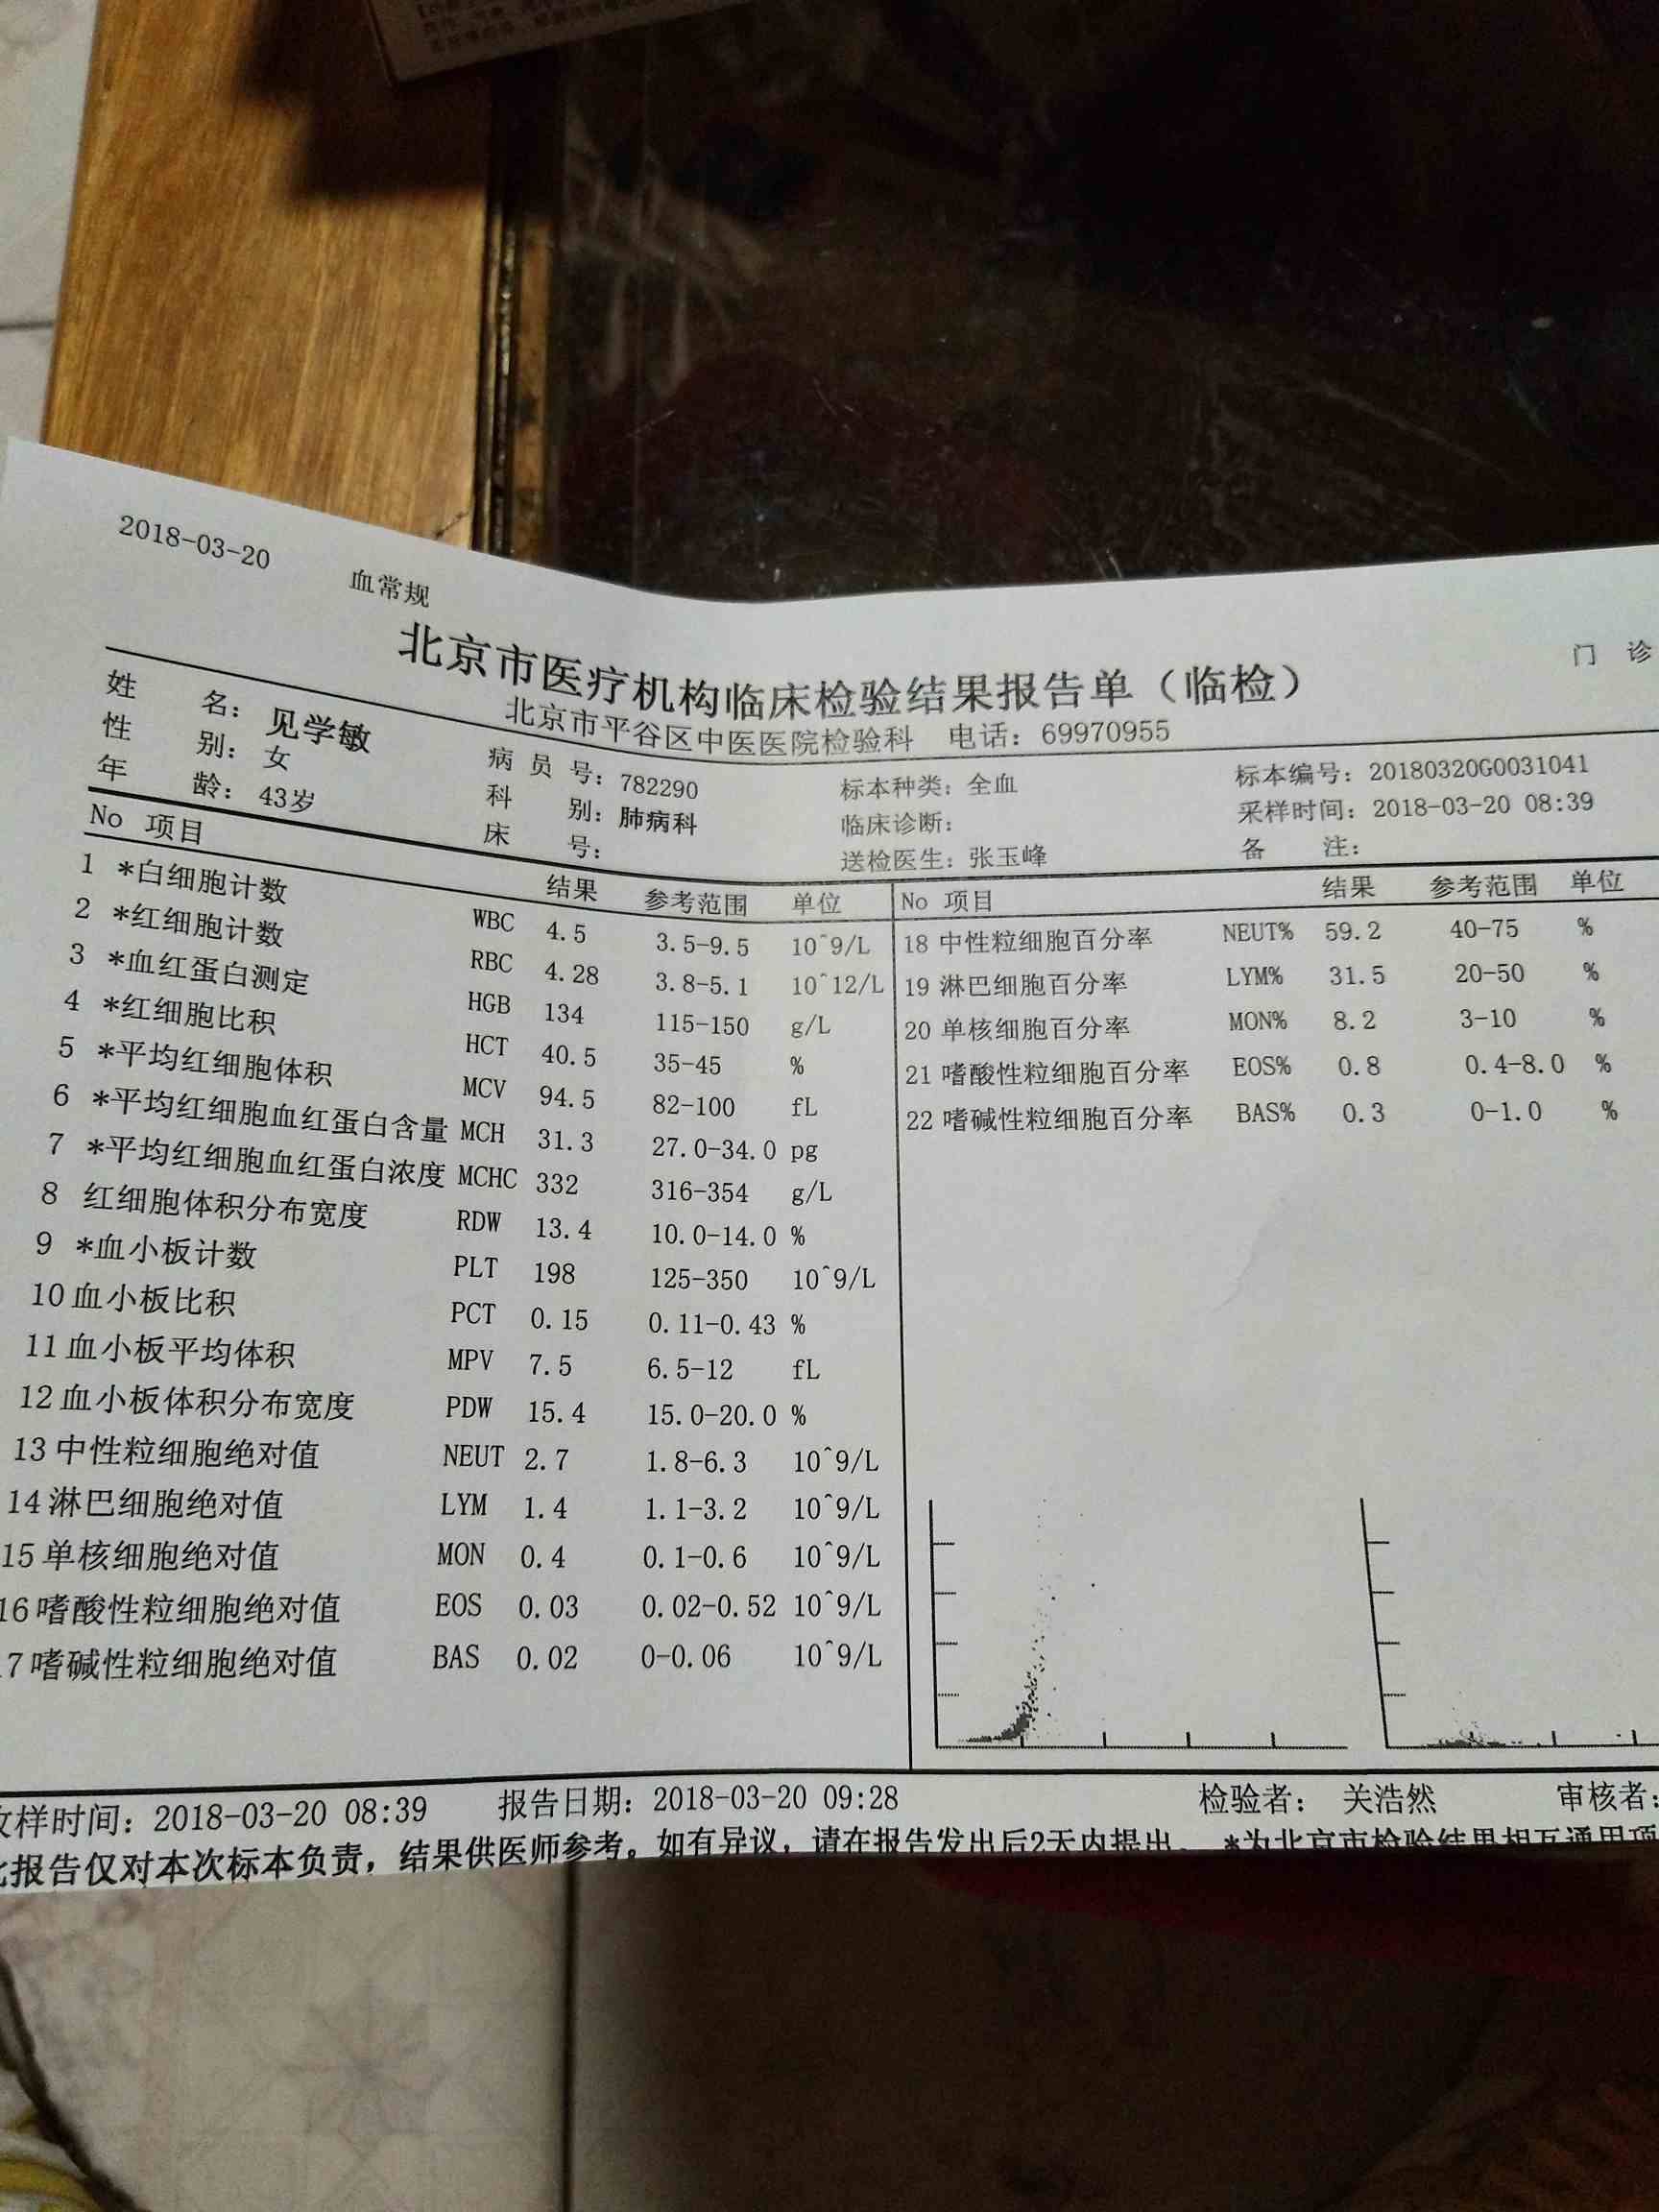 2018-03-20 血常规
门 诊
北京市医疗机构临床检验结果报告单（临检）
北京市平谷区中医医院检验科 电话：69970955
姓 名：见学敏
性 别：女
年 龄：43岁
病 员 号：782290
科 别：肺病科
床 号：
标本种类：全血
临床诊断：
送检医生：张玉峰
标本编号：20180320G0031041
采样时间：2018-03-20 08:39
备 注：
No 项目 结果 参考范围 单位
1 *白细胞计数 WBC 4.5 3.5-9.5 10^9/L
2 *红细胞计数 RBC 4.28 3.8-5.1 10^12/L
3 *血红蛋白测定 HGB 134 115-150 g/L
4 *红细胞比积 HCT 40.5 35-45 %
5 *平均红细胞体积 MCV 94.5 82-100 fL
6 *平均红细胞血红蛋白含量 MCH 31.3 27.0-34.0 pg
7 *平均红细胞血红蛋白浓度 MCHC 332 316-354 g/L
8 红细胞体积分布宽度 RDW 13.4 10.0-14.0 %
9 *血小板计数 PLT 198 125-350 10^9/L
10 血小板比积 PCT 0.15 0.11-0.43 %
11 血小板平均体积 MPV 7.5 6.5-12 fL
12 血小板体积分布宽度 PDW 15.4 15.0-20.0 %
13 中性粒细胞绝对值 NEUT 2.7 1.8-6.3 10^9/L
14 淋巴细胞绝对值 LYM 1.4 1.1-3.2 10^9/L
15 单核细胞绝对值 MON 0.4 0.1-0.6 10^9/L
16 嗜酸性粒细胞绝对值 EOS 0.03 0.02-0.52 10^9/L
7 嗜碱性粒细胞绝对值 BAS 0.02 0-0.06 10^9/L
No 项目 结果 参考范围 单位
18 中性粒细胞百分率 NEUT% 59.2 40-75 %
19 淋巴细胞百分率 LYM% 31.5 20-50 %
20 单核细胞百分率 MON% 8.2 3-10 %
21 嗜酸性粒细胞百分率 EOS% 0.8 0.4-8.0 %
22 嗜碱性粒细胞百分率 BAS% 0.3 0-1.0 %
样时间：2018-03-20 08:39 报告日期：2018-03-20 09:28 检验者： 关浩然 审核者：
报告仅对本次标本负责，结果供医师参考。如有异议，请在报告发出后2天内提出。 *为北京市检验结果相互通用项